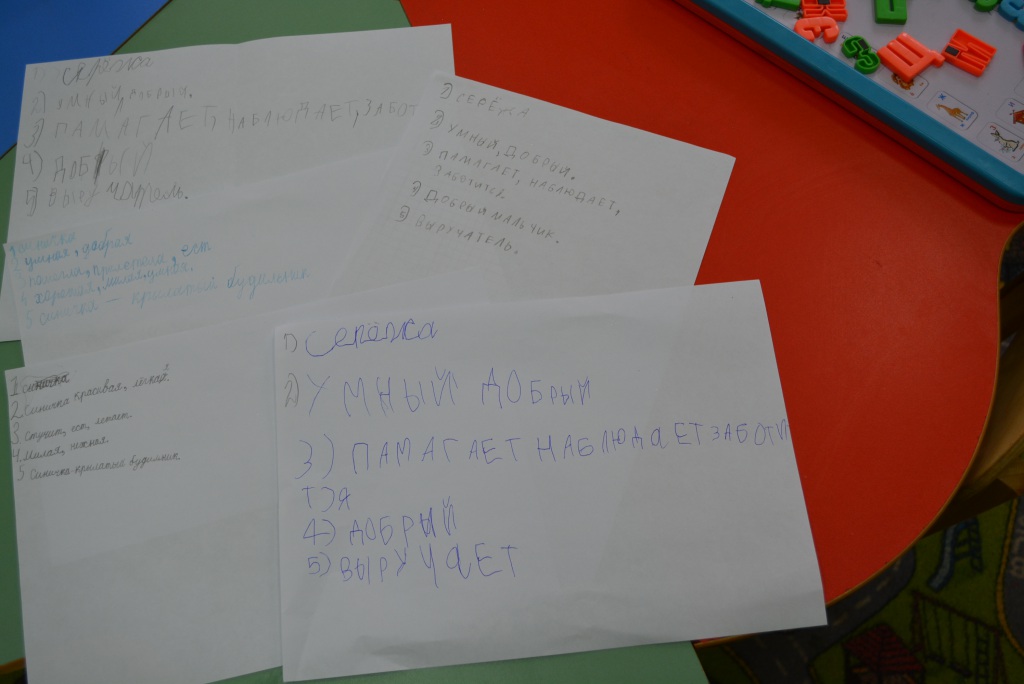 1) Серёжа
2) УМНЫЙ, ДОБРЫЙ.
3) ПАМАГАЕТ, НАБЛЮДАЕТ, ЗАБОТ
4) ДОБРЫЙ
5) ВЫРУЧАТЕЛЬ.
1) СЕРЁЖА
2) УМНЫЙ, ДОБРИЙ.
3) ПАМАГАЕТ, НАБЛЮДАЕТ,
ЗАБОТИТСЯ
ДОБРЫЙ МАЛЬЧИК.
ВЫРУЧАТЕЛЬ.
умная, добрая
прилетела, ест
хорошая, милая, умная.
5 синичка — крылатый будильник
1 Синичка
2 Синичка красивая,
3 стучит, ест, летает.
4 Милая, нежная.
5 Синичка-крылатые будильник
1) Серёжа
2) УМНЫЙ ДОБРЫЙ
3) ПАМАГАЕТ НАБЛЮДаЕТ ЗАБОТИ
ТЭЯ
4) ДОБРЫЙ
5) ВЫРУЧаЕТ